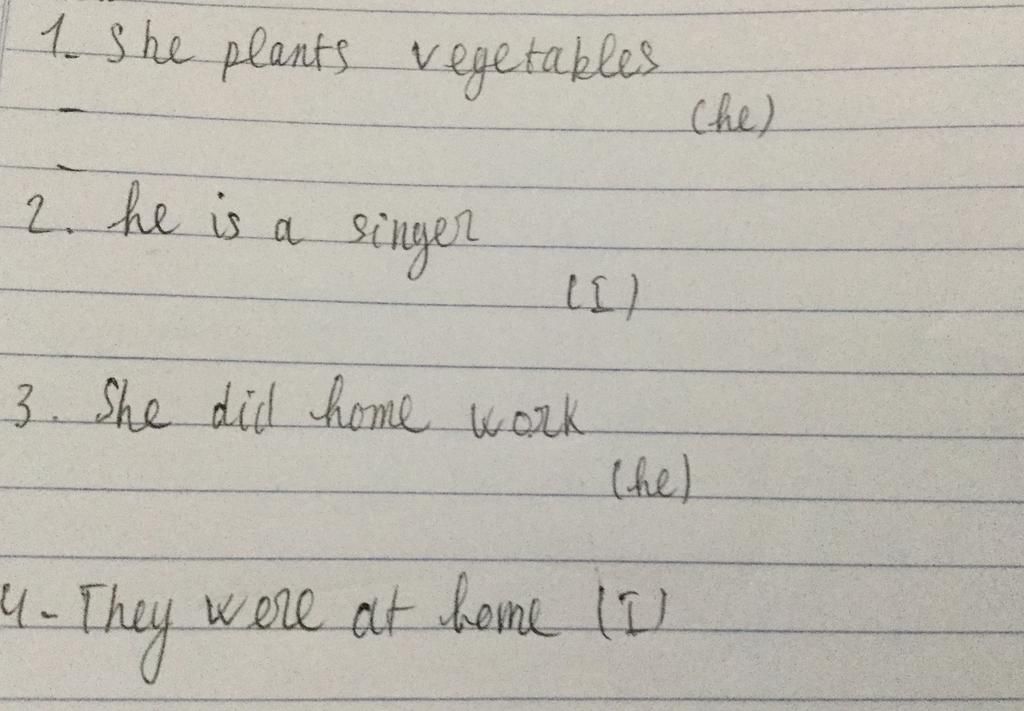 1. She plants vegetables
(he)
2. he is a singer
(I)
3. She did home work
(he)
4- They were at home (I)